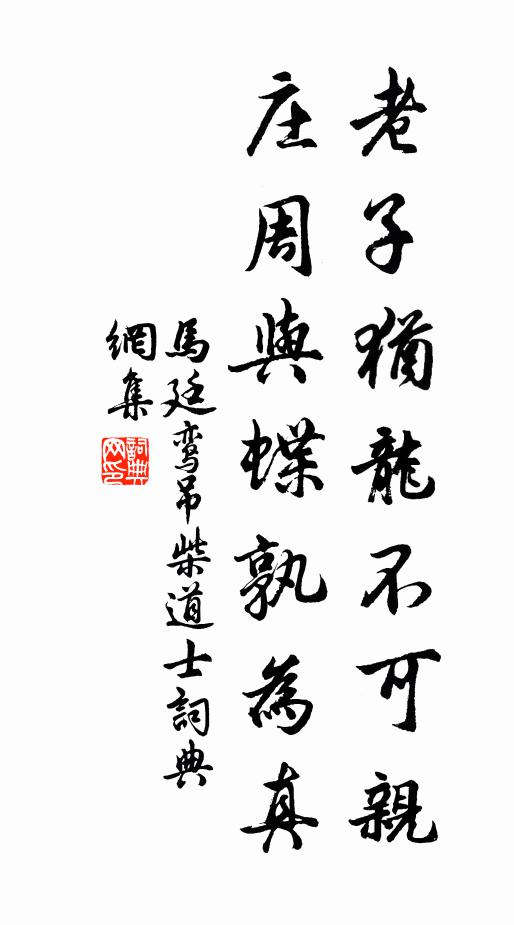 老子猶龍不可親
庄周與蝶孰為真
馬廷鸾吊柴道士詞典
網集
詞典
网印